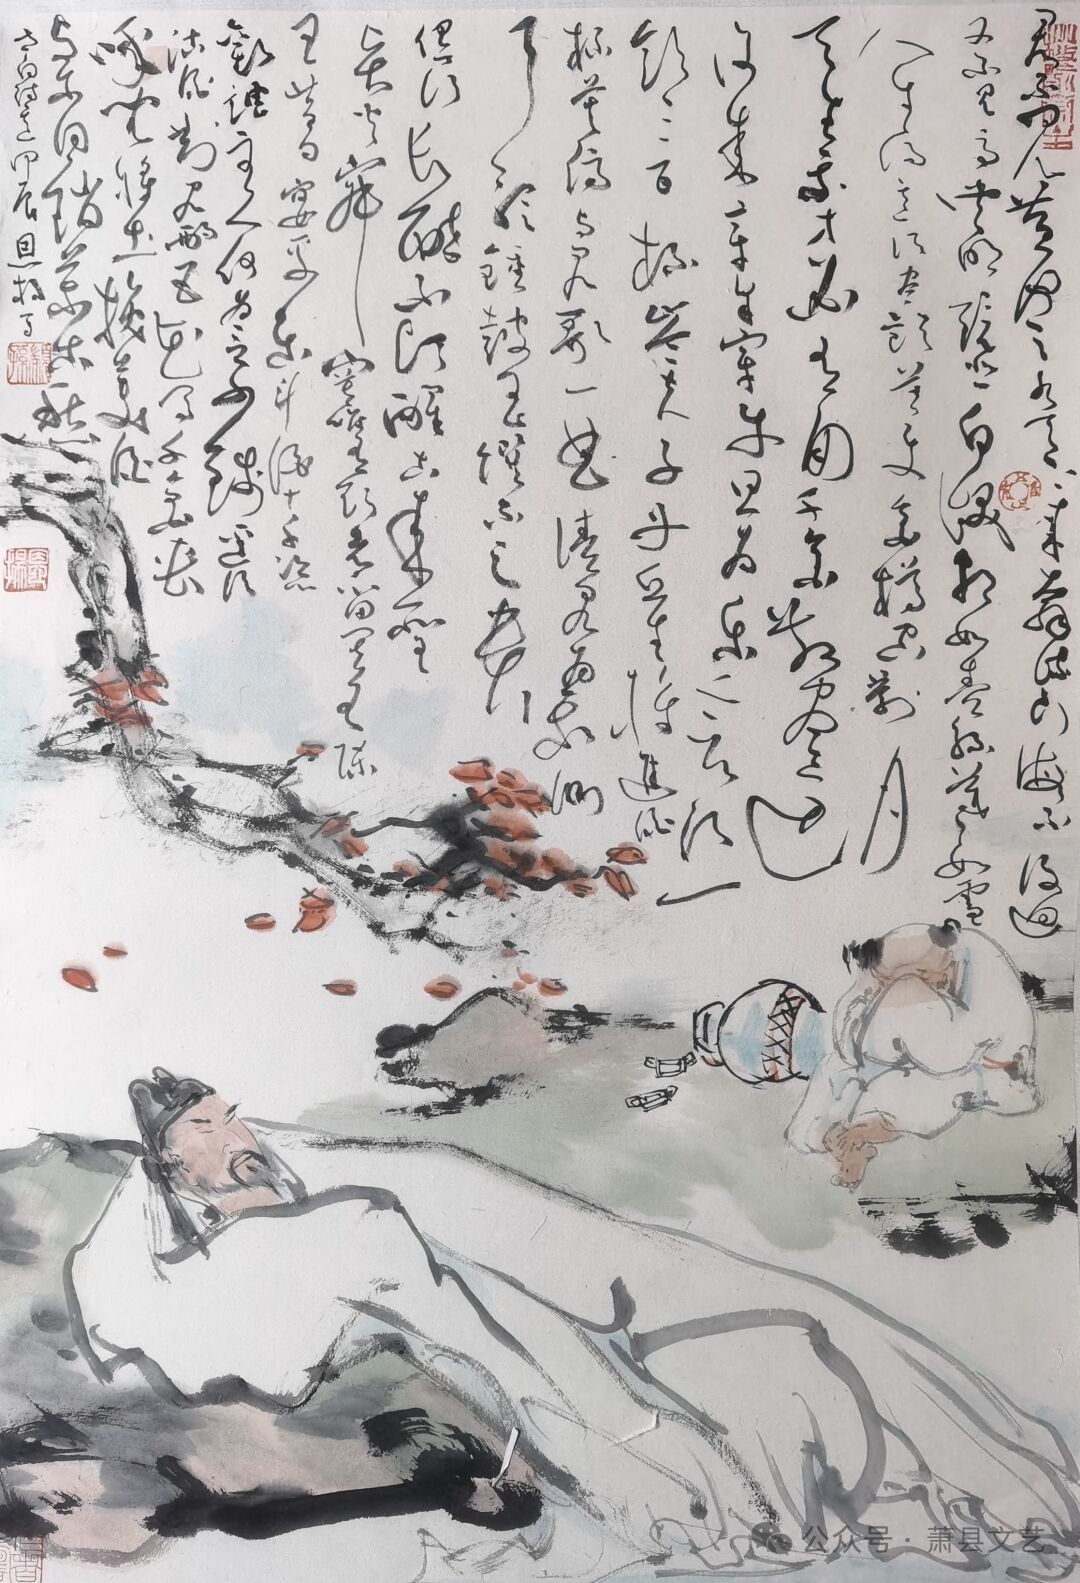 君不见黄河之水天上来奔流到海不复回
又不见高堂明镜悲白发朝如青丝暮如雪
人生得意须尽欢莫使金樽空对月
天生我才必有用千金散尽还
复来烹羊宰牛且为乐会须一
饮三百杯岑夫子丹丘生将进酒
杯莫停与君歌一曲请君为我侧
耳听钟鼓玉馔不足贵
但愿长醉不须醒古来圣
贤皆寂寞唯有饮者留其名陈
王昔日宴平乐斗酒十千恣
欢谑主人何为言少钱还须
沽酒对君酌五花马千金裘
呼儿将出换美酒
与尔同销万古愁
太白诗意甲辰恩扬写
公众号·萧县文艺